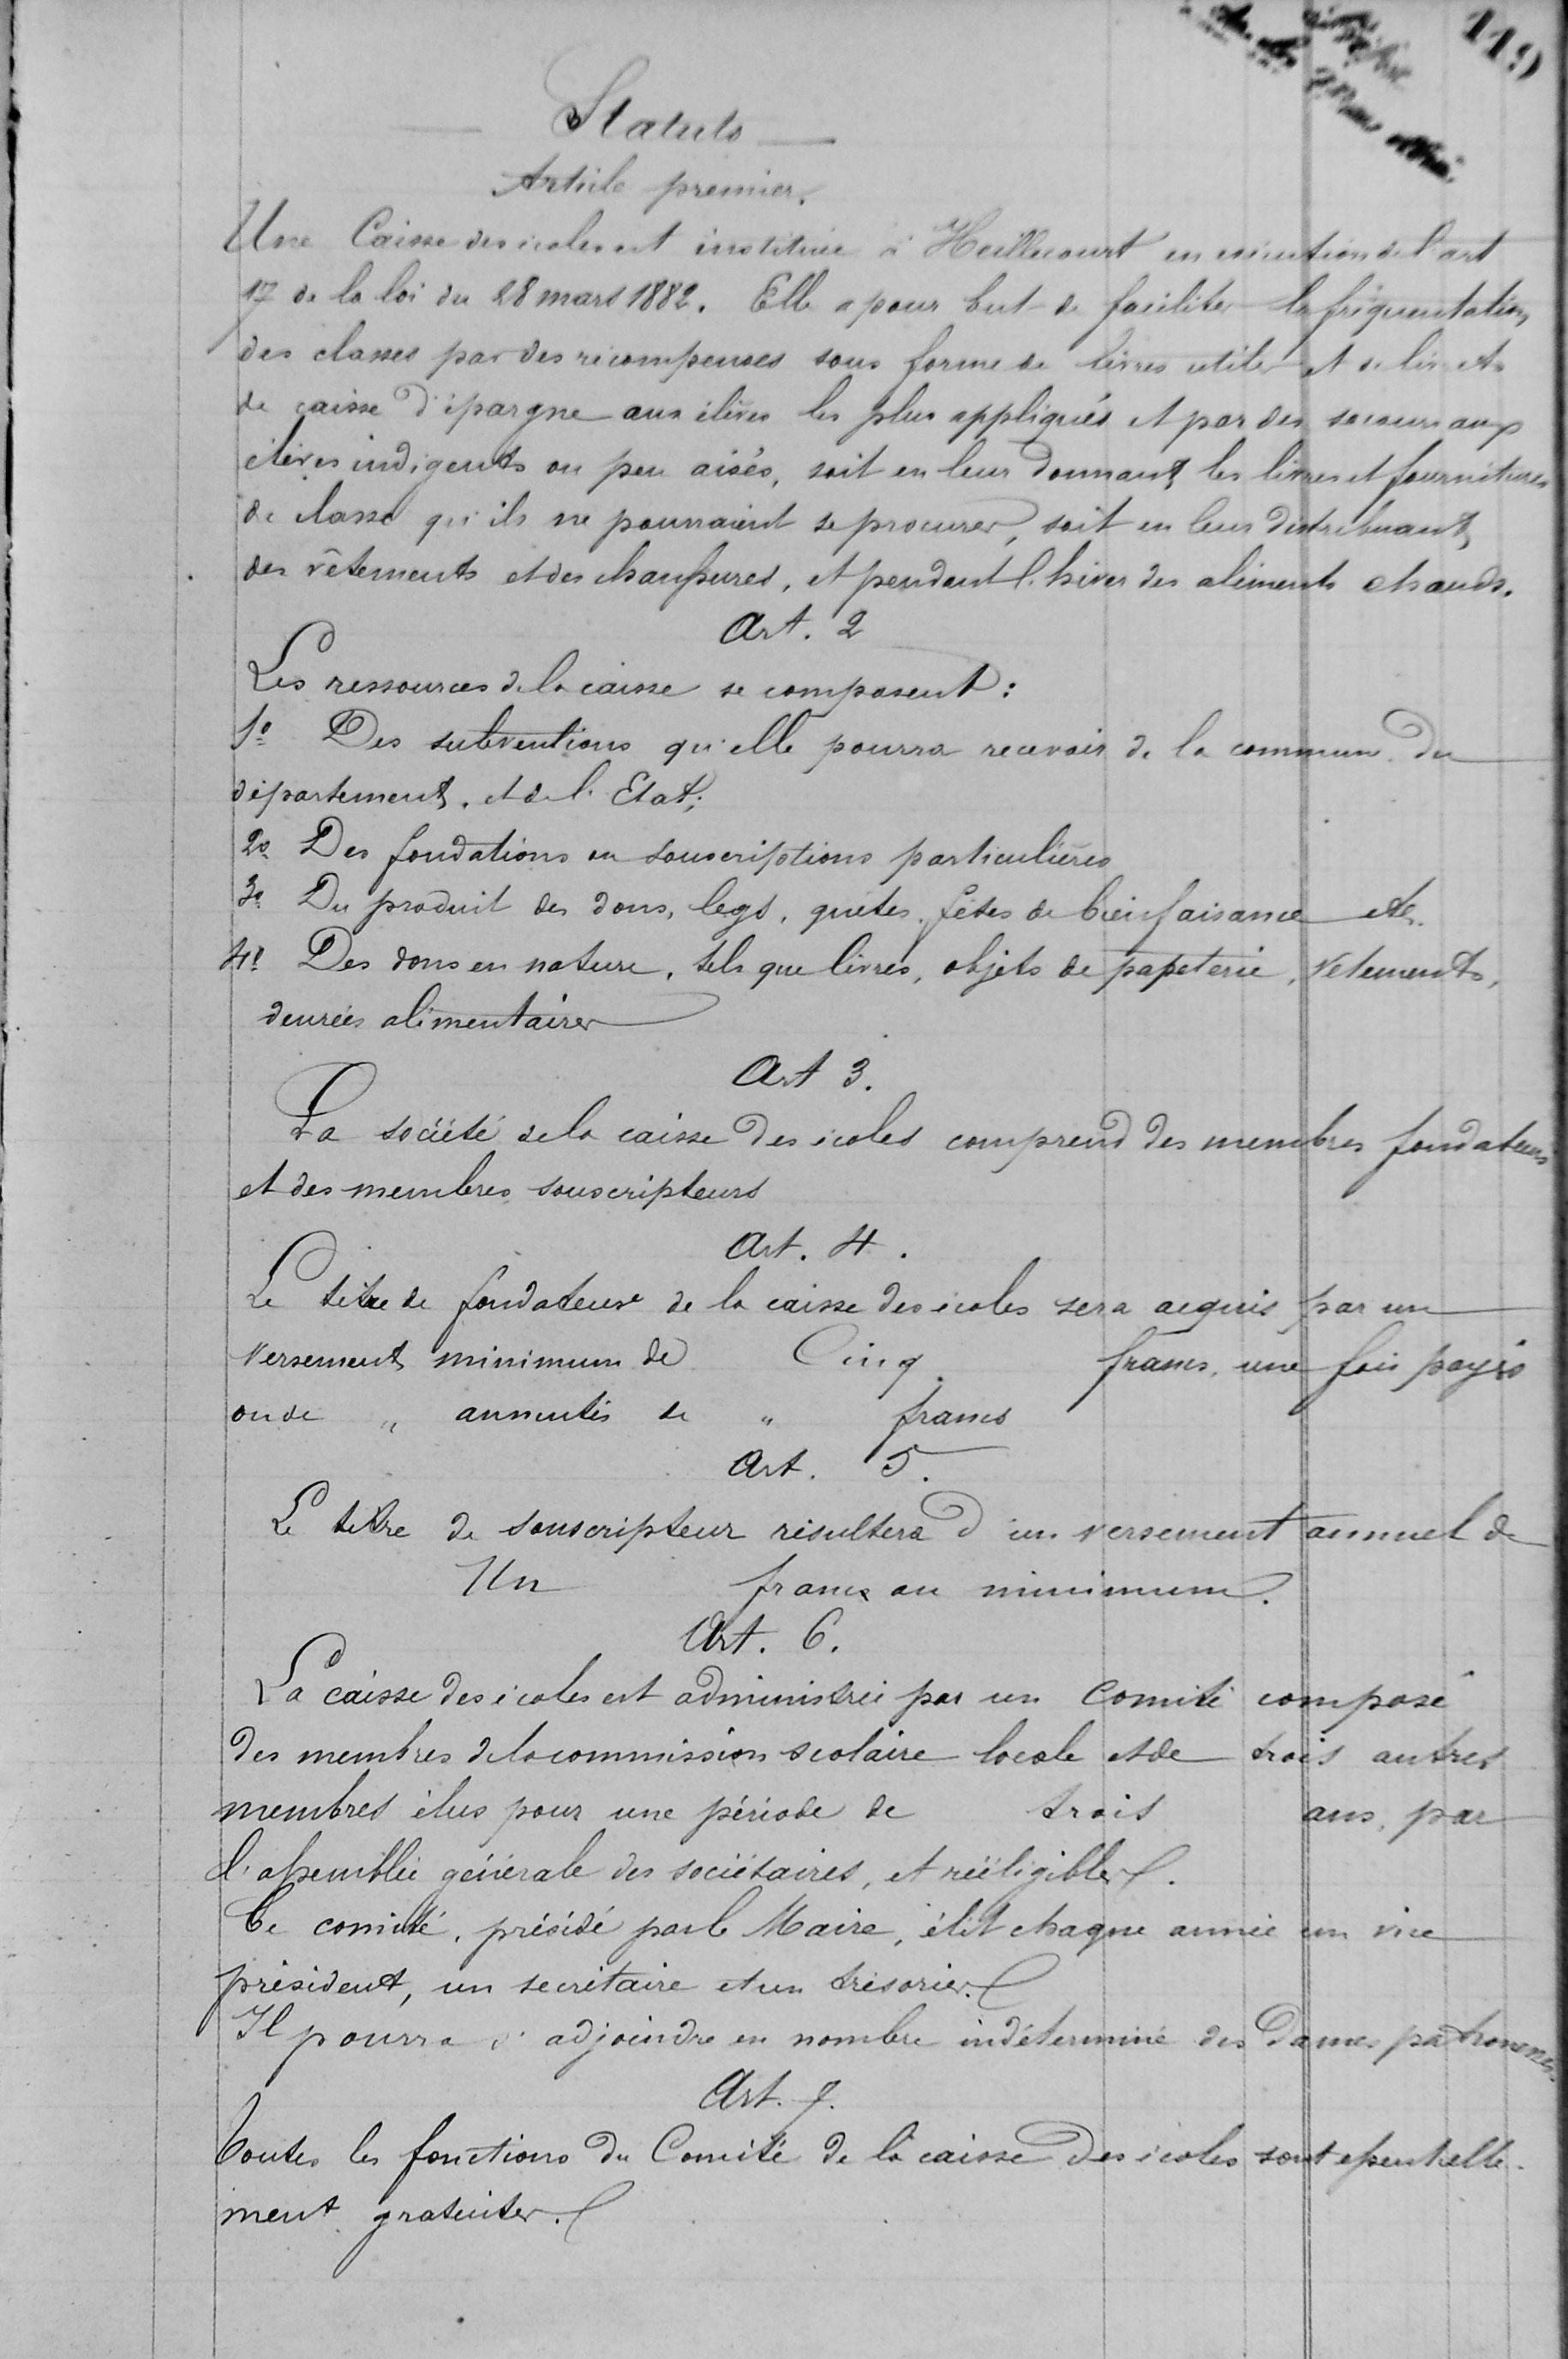 119
Statuts
Article premier.
Une Caisse des écoles est instituée à Heillecourt en exécution de l'art
17 de la loi du 28 mars 1882. Elle a pour but de faciliter la fréquentation
des classes par des récompenses sous forme de livres utiles et de livrets
de caisse d'épargne aux élèves les plus appliqués et par des secours aux
élèves indigents ou peu aisés, soit en leur donnant les livres et fournitures
de classe qu'ils ne pourraient se procurer, soit en leur distribuant
des vêtements et des chaussures, et pendant l'hiver des aliments chauds.
Art. 2
Les ressources de la caisse se composent :
1º Des subventions qu'elle pourra recevoir de la commune du
département, et de l'Etat;
2º Des fondations ou souscriptions particulières
3º Du produit des dons, legs, quêtes, fêtes de bienfaisance etc.
4º Des dons en nature, tels que livres, objets de papeterie, vêtements,
denrées alimentaires
Art 3.
La société de la caisse des écoles comprend des membres fondateurs
et des membres souscripteurs
Art. 4.
Le titre de fondateur de la caisse des écoles sera acquis par un
versement minimum de Cinq francs, une fois payés
ou de " annuités de " francs
Art. 5.
Le titre de souscripteur résultera d'un versement annuel de
Un franc au minimum.
Art. 6.
La caisse des écoles est administrée par un Comité composé
des membres de la commission scolaire locale et de trois autres
membres élus pour une période de trois ans, par
l'assemblée générale des sociétaires, et rééligibles.
Ce comité, présidé par le Maire, élit chaque année un vice
président, un secrétaire et un trésorier.
Il pourra s'adjoindre en nombre indéterminé des Dames patronesses.
Art. 7.
Toutes les fonctions du Comité de la caisse des écoles sont essentielle-
ment gratuites.